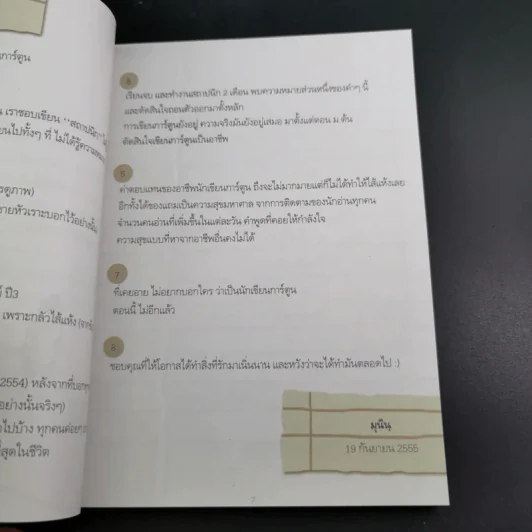 การ์ตูน
เราชอบเขียน "สถาปนิก"
ไปทั้งๆ ที่ ไม่ได้รู้ความหมาย
รดูภาพ)
รายหัวเราะบอกไว้อย่างนั้น
ปี3
เพราะกลัวไส้แห้ง
2554) หลังจากที่บอก
อย่างนั้นจริงๆ)
ไปบ้าง ทุกคนค่อยๆ
ที่สุดในชีวิต
5
เรียนจบ และทำงานสถาปนิก 2 เดือน พบความหมายส่วนหนึ่งของคำๆ นี้
และตัดสินใจถอนตัวออกมาตั้งหลัก
การเขียนการ์ตูนยังอยู่ ความจริงมันยังอยู่เสมอ มาตั้งแต่ตอน ม.ต้น
ตัดสินใจเขียนการ์ตูนเป็นอาชีพ
6
ค่าตอบแทนของอาชีพนักเขียนการ์ตูน ถึงจะไม่มากมายแต่ก็ไม่ได้ทำให้ไส้แห้งเลย
อีกทั้งได้ของแถมเป็นความสุขมหาศาล จากการติดตามของนักอ่านทุกคน
จำนวนคนอ่านที่เพิ่มขึ้นในแต่ละวัน คำพูดที่คอยให้กำลังใจ
ความสุขแบบที่หาจากอาชีพอื่นคงไม่ได้
7
ที่เคยอาย ไม่อยากบอกใคร ว่าเป็นนักเขียนการ์ตูน
ตอนนี้ ไม่อีกแล้ว
8
ขอบคุณที่ให้โอกาสได้ทำสิ่งที่รักมาเนิ่นนาน และหวังว่าจะได้ทำมันตลอดไป :)
มุนินฺ
19 กันยายน 2555
7